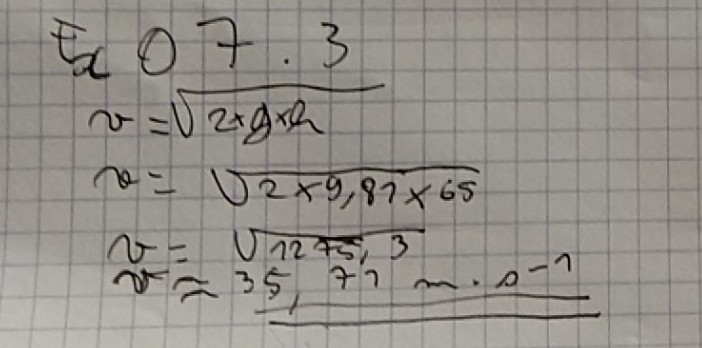 Ex 07.3
v = √2×g×h
v = √2×9,81×65
v = √1275,3
v ≈ 35,71 m·s⁻¹